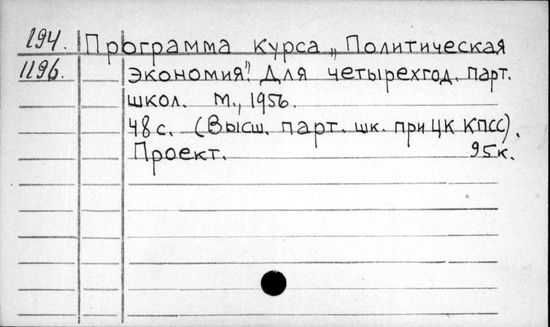 194. Программа курса „Политическая
1196. экономия". Для четырехгод. парт.
школ. М., 1956.
48 с. (Высш. парт. шк. при ЦК КПСС).
Проект. 95к.